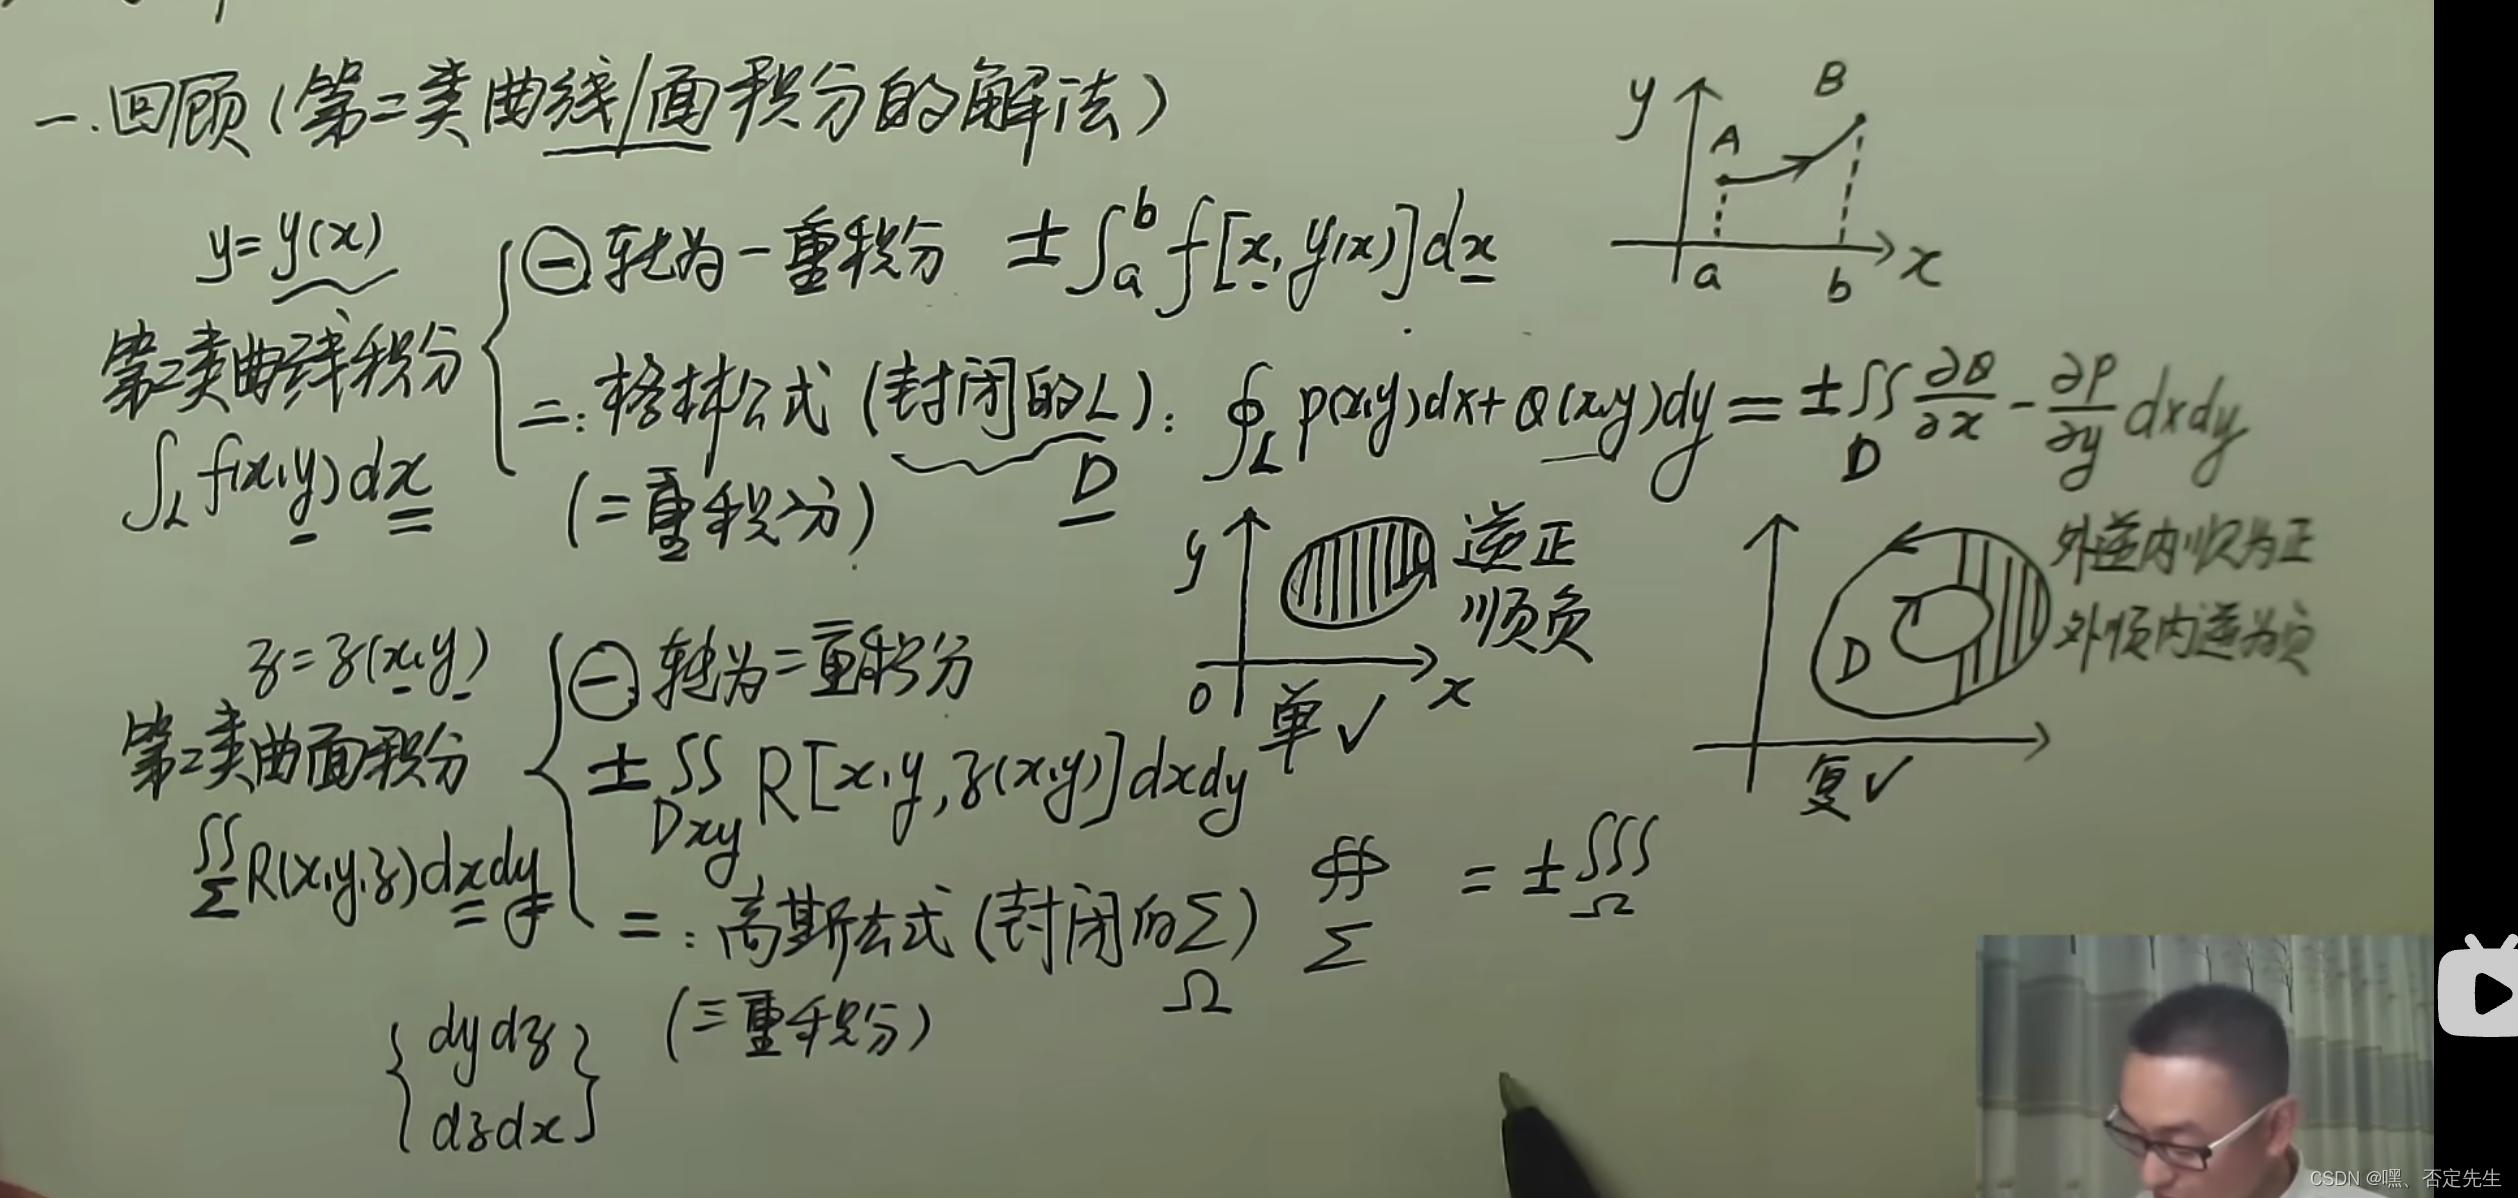 一.回顾(第二类曲线/面积分的解法)
y=y(x)
第2类曲线积分
∫_L f(x,y)dx
㊀转为一重积分 ±∫_a^b f[x,y(x)]dx
y
A
B
a
b
x
二:格林公式(封闭的L): ∮_L P(x,y)dx+Q(x,y)dy=±∬_D ∂Q/∂x-∂P/∂y dxdy
D
(二重积分)
y
0
x
逆正
顺负
单✓
D
外逆内顺为正
外顺内逆为负
复✓
z=z(x,y)
第2类曲面积分
∬_Σ R(x,y,z)dxdy
㊀转为二重积分
±∬_Dxy R[x,y,z(x,y)]dxdy
二:高斯公式(封闭的Σ) ∯_Σ =±∭_Ω
Ω
(三重积分)
{dydz
dzdx}
CSDN @嘿、否定先生